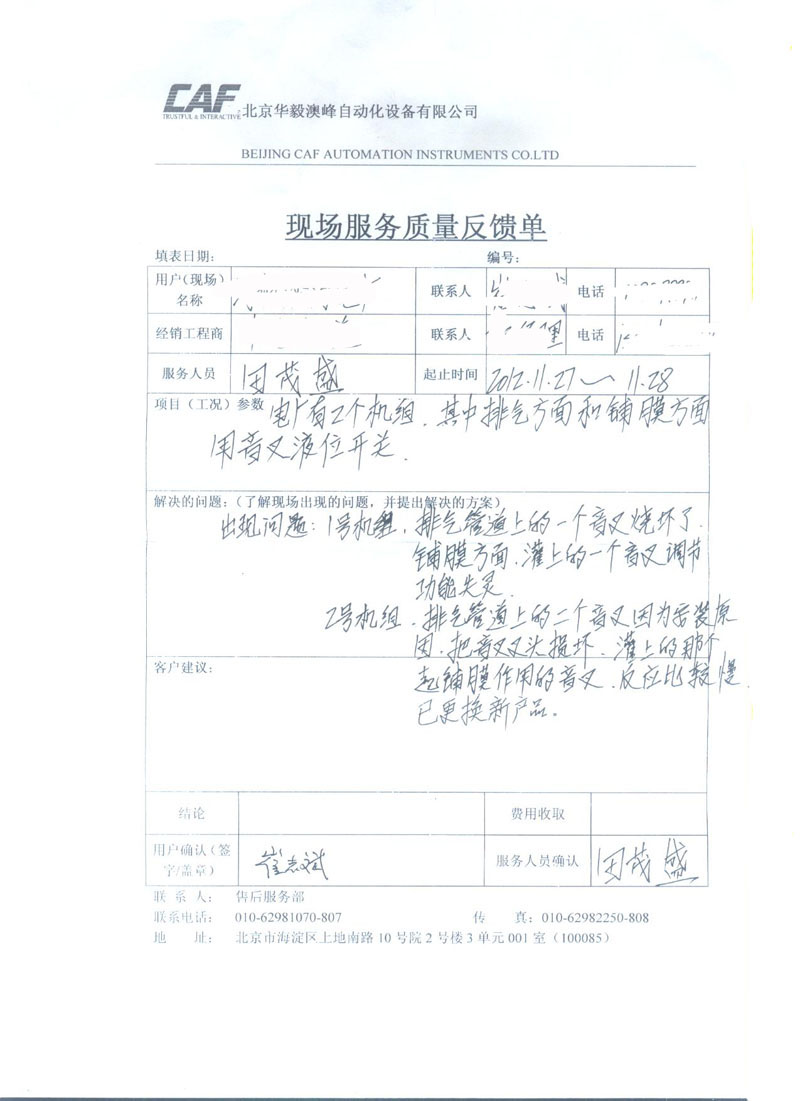 CAF
TRUSTFUL & INTERACTIVE
北京华毅澳峰自动化设备有限公司
BEIJING CAF AUTOMATION INSTRUMENTS CO.LTD
现场服务质量反馈单
填表日期: 编号:
用户(现场)名称 联系人 电话
经销工程商 联系人 电话
服务人员 田茂盛 起止时间 2012.11.27~11.28
项目(工况)参数 电厂有2个机组.其中排气方面和铺膜方面
用音叉液位开关.
解决的问题:(了解现场出现的问题,并提出解决的方案)
出现问题:1号机组,排气管道上的一个音叉烧坏了.
铺膜方面,灌上的一个音叉调节
功能失灵.
2号机组.排气管道上的二个音叉因为安装原
因,把音叉叉头损坏.灌上的那个
起铺膜作用的音叉.反应比较慢
已更换新产品.
客户建议:
结论 费用收取
用户确认(签字/盖章) 崔志斌 服务人员确认 田茂盛
联 系 人: 售后服务部
联系电话: 010-62981070-807 传 真: 010-62982250-808
地 址: 北京市海淀区上地南路10号院2号楼3单元001室(100085)